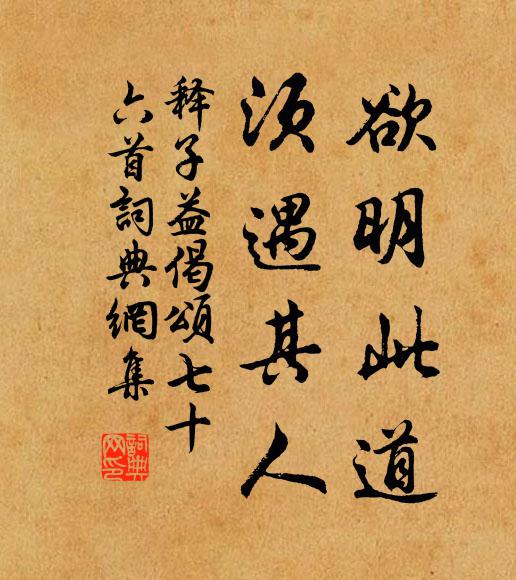 欲明此道
须遇其人
释子益偈颂七十
六首詞典網集
詞典网印